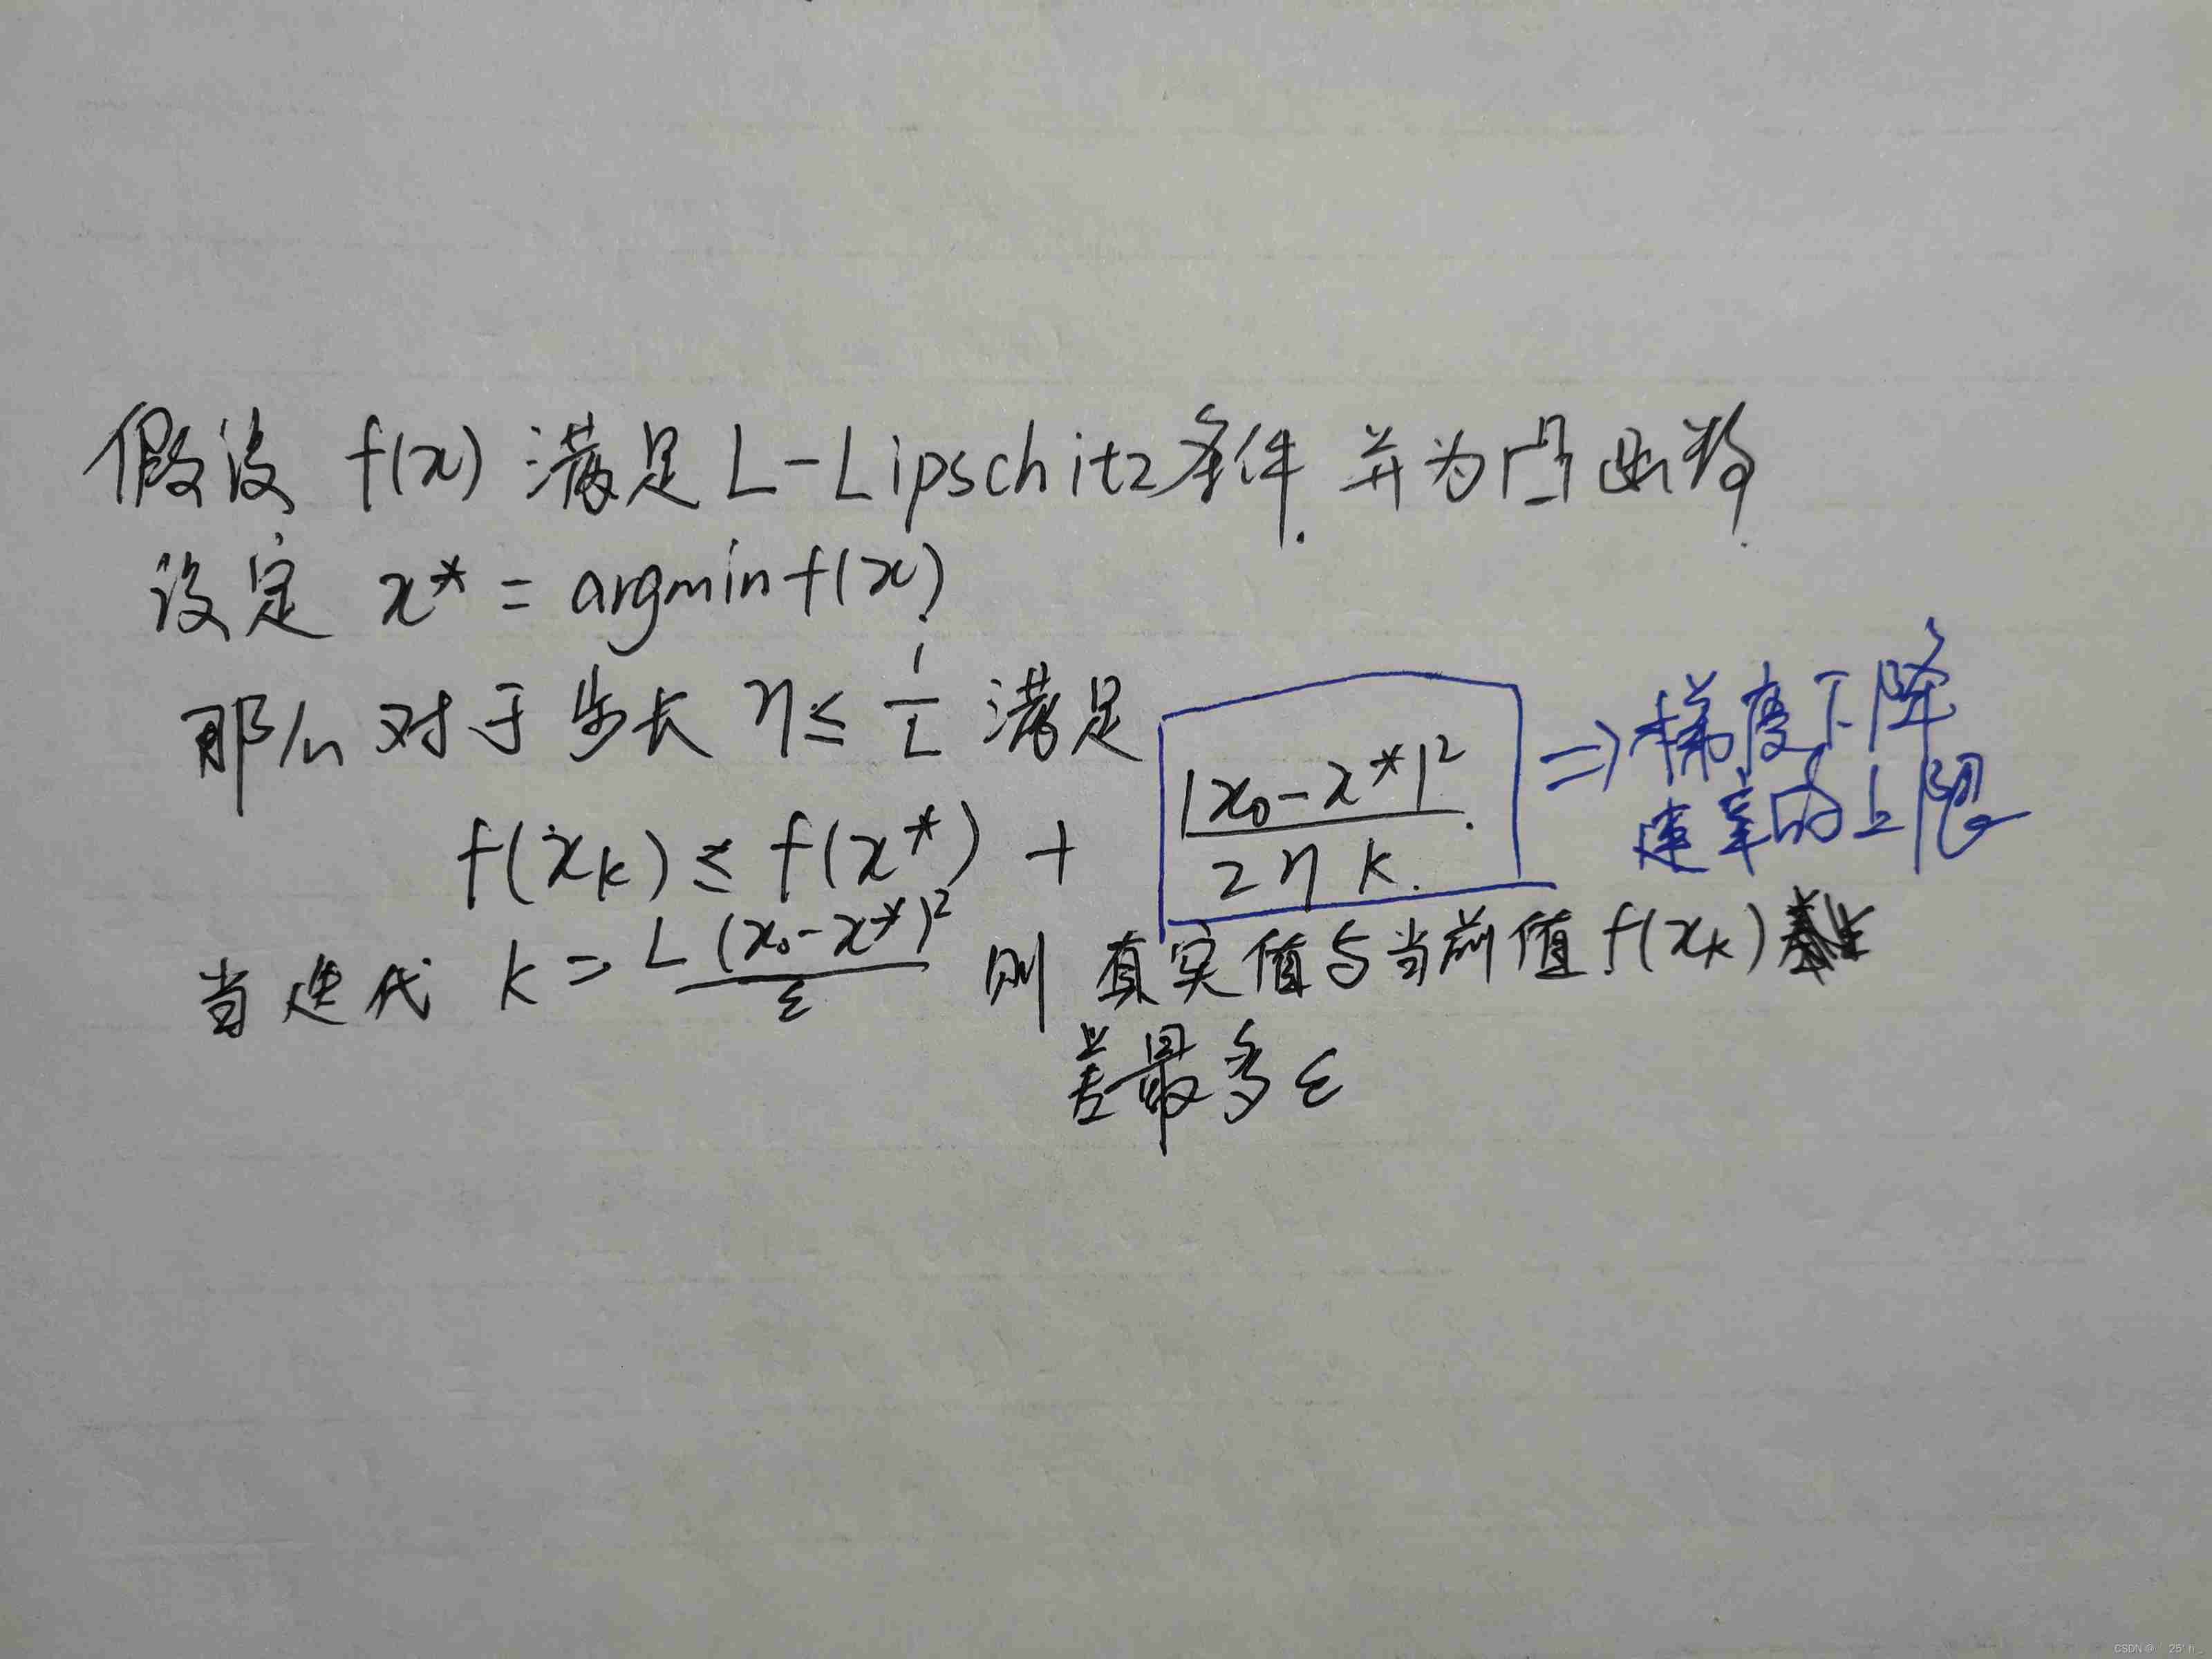 假设 f(x) 满足 L-Lipschitz条件. 并为凸函数.
设定 x* = argmin f(x)
那么 对于 步长 η ≤ 1/L 满足
f(x_k) ≤ f(x*) + |x_0 - x*|² / 2ηk. ⇒ 梯度下降
速率的上限
当迭代 k = L(x_0 - x*)² / ε 则 真实值与当前值 f(x_k)
差最多 ε
CSDN @ 25' h